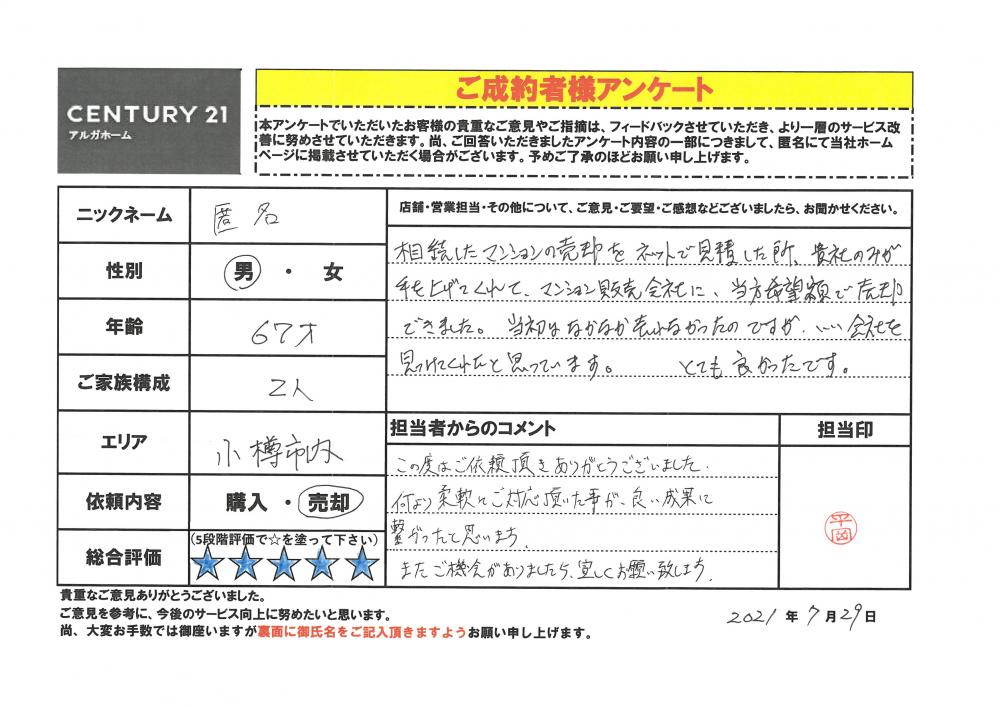 CENTURY 21
アルガホーム
ご成約者様アンケート
本アンケートでいただいたお客様の貴重なご意見やご指摘は、フィードバックさせていただき、より一層のサービス改
善に努めさせていただきます。尚、ご回答いただきましたアンケート内容の一部につきまして、匿名にて当社ホーム
ページに掲載させていただく場合がございます。予めご了承のほどお願い申し上げます。
ニックネーム 匿名
性別 男・女
年齢 67才
ご家族構成 2人
エリア 小樽市内
依頼内容 購入・売却
総合評価 (5段階評価で☆を塗って下さい)
★★★★★
店舗・営業担当・その他について、ご意見・ご要望・ご感想などございましたら、お聞かせください。
相続したマンションの売却をネットで見積した所、貴社のみが
手を上げてくれて、マンション販売会社に、当方希望額で売却
できました。当初はなかなか売れなかったのですが、いい会社を
見つけてくれたと思っています。 とても良かったです。
担当者からのコメント
この度はご依頼頂きありがとうございました。
何より柔軟にご対応頂いた事が、良い成果に
繋がったと思います。
またご機会がありましたら、宜しくお願い致します。
担当印
平岡
貴重なご意見ありがとうございました。
ご意見を参考に、今後のサービス向上に努めたいと思います。
尚、大変お手数では御座いますが裏面に御氏名をご記入頂きますようお願い申し上げます。
2021年7月29日